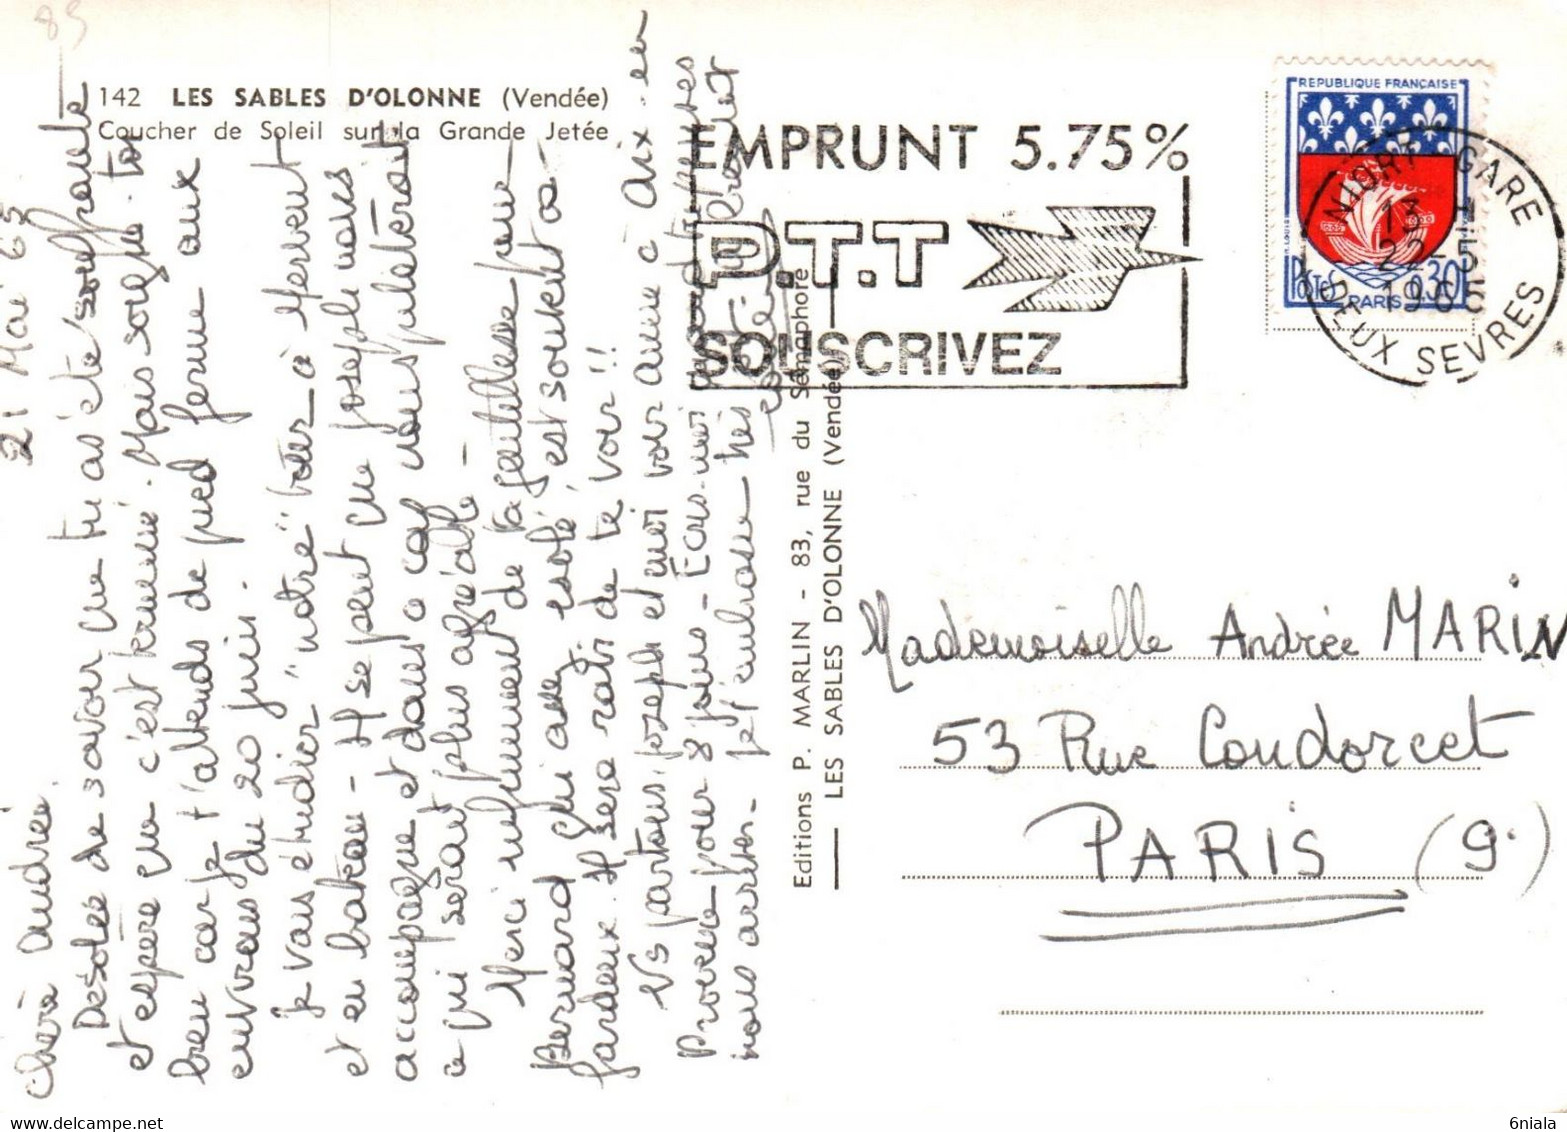 85
142 LES SABLES D'OLONNE (Vendée)
Coucher de Soleil sur la Grande Jetée
EMPRUNT 5.75%
P.T.T
SOUSCRIVEZ
REPUBLIQUE FRANÇAISE
POSTES
0,30
PARIS
NIORT GARE
22-5
1965
DEUX SEVRES
21 Mai 65
Chère Andrée
Désolée de savoir que tu as été souffrante
et espère que c'est terminé. Mais soigne-toi
bien car je t'attends de pied ferme aux
environs du 20 juin.
Je vais étudier "notre" tour à Mervent
et en bateau - Il se peut que Joseph nous
accompagne et dans ce cas nous
ce qui serait plus agréable -
Merci infiniment de ta gentillesse pour
Bernard qui assez isolé, est souvent
. Il sera ravi de te voir !!
Ns partons Joseph et moi voir Anne à Aix-en
Provence pour 8 jours -
nous arrier. Je t'embrasse très
Editions P. MARLIN - 83, rue du Sémaphore
LES SABLES D'OLONNE (Vendée)
Mademoiselle Andrée MARIN
53 Rue Condorcet
PARIS (9.)
6niala